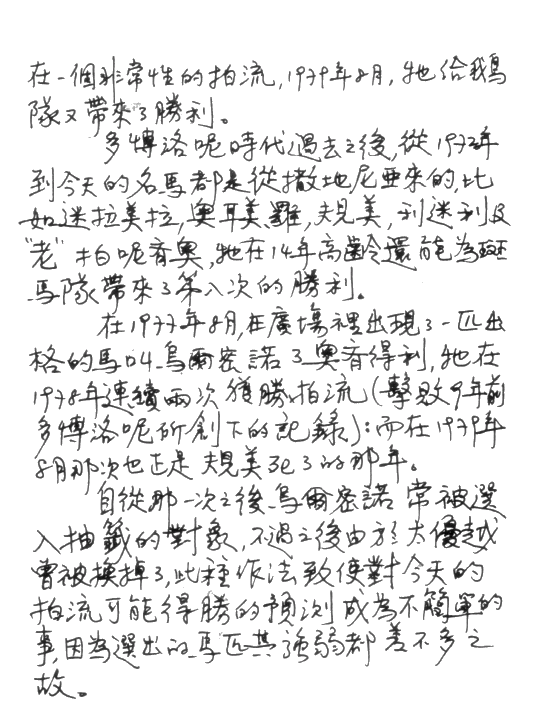 在一個非常性的拍流,1979年8月,牠給我馬
隊又帶來了勝利。
多博洛呢時代過去之後,從1972年
到今天的名馬都是從撒地尼亜來的,比
如迷拉美拉,奧耳美羅,規美,利迷利及
"老"拍呢育奧,牠在14年高齡還能為
馬隊帶來了第八次的勝利。
在1977年8月,在廣場裡出現了一匹出
格的馬叫烏爾密諾了奧育得利,牠在
1978年連續兩次獲勝拍流(擊敗9年前
多博洛呢所創下的記錄):而在1979年
8月那次也正是規美死了的那年。
自從那一次之後烏爾密諾常被選
入抽籤的對象,不過之後由於太優越
曾被換掉了,此種作法致使對今天的
拍流可能得勝的預測成為不簡單的
事,因為選出的馬匹其強弱都差不多之
故。